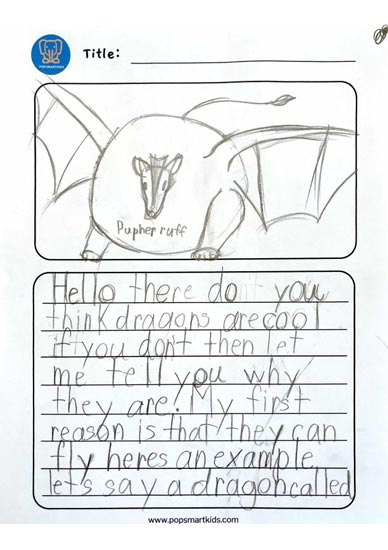 POPSMARTKIDS
Title:
Pupher ruff
Hello there don't you
think dragons are cool
if you don't then let
me tell you why
they are! My first
reason is that they can
fly heres an example
let's say a dragon called
www.popsmartkids.com